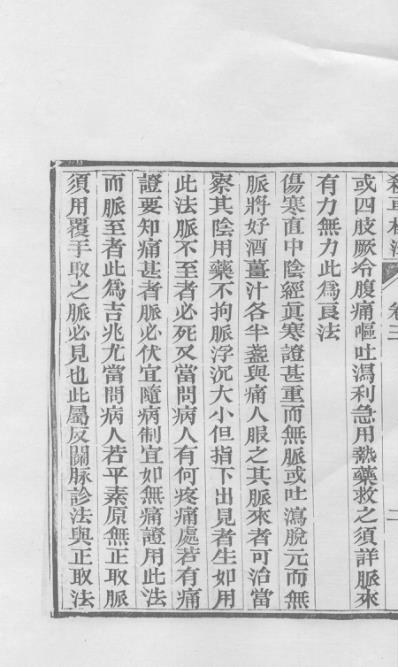 卷三
二
或四肢厥冷腹痛嘔吐瀉利急用熱藥救之須詳脈來
有力無力此為良法
傷寒直中陰經真寒證甚重而無脈或吐瀉脫元而無
脈將好酒薑汁各半盞與病人服之其脈來者可治當
察其陰用藥不拘脈浮沉大小但指下出見者生如用
此法脈不至者必死又當問病人有何疼痛處若有痛
證要知痛甚者脈必伏宜隨病制宜如無痛證用此法
而脈至者此為吉兆尤當問病人若平素原無正取脈
須用覆手取之脈必見也此屬反關脈診法與正取法